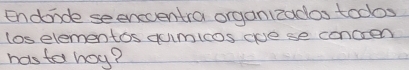 Endónde se encuentra organizados todos
los elementos quimicos que se conocen
hasta hoy?